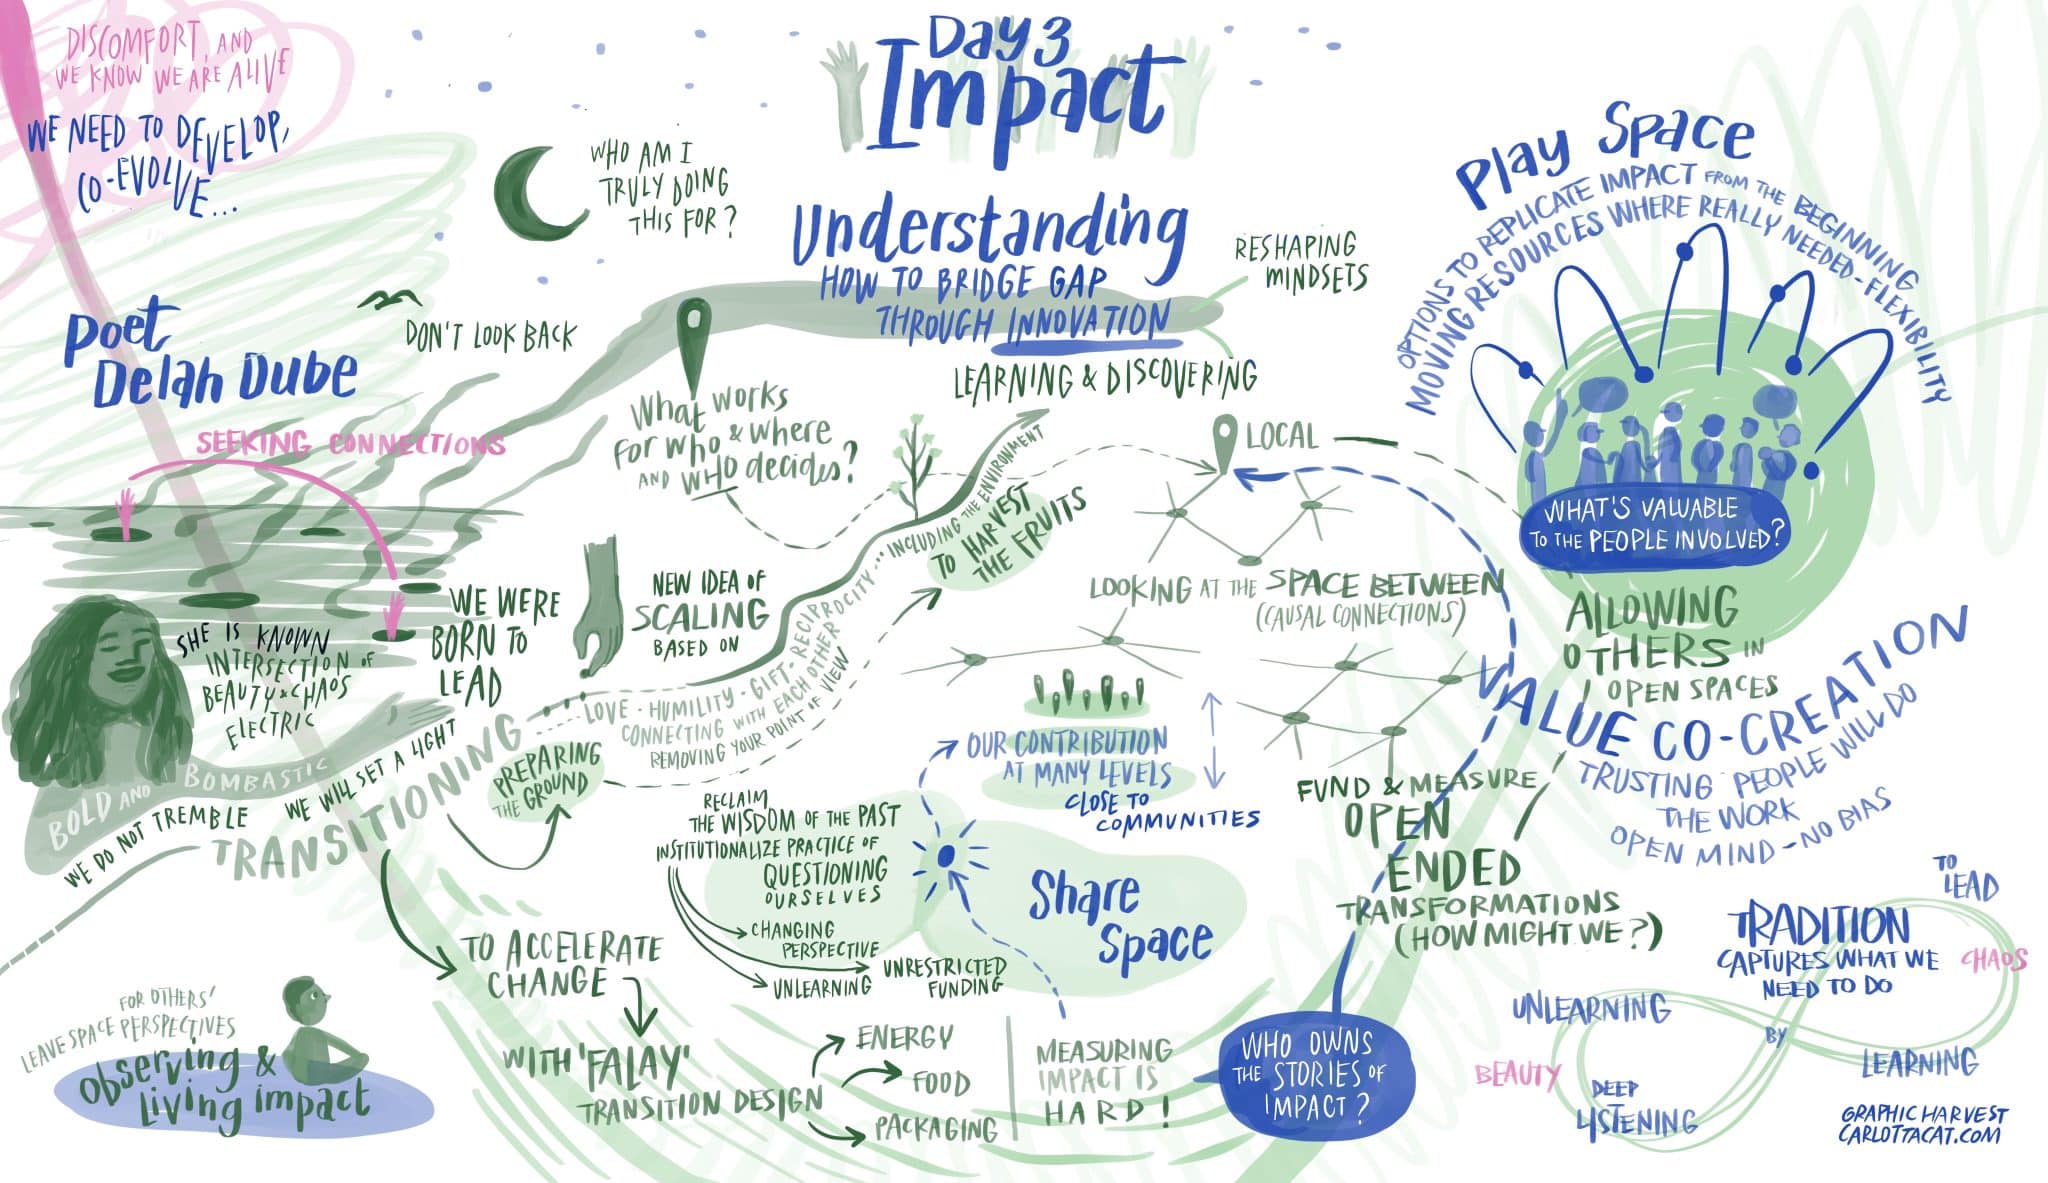 Day 3
Impact
DISCOMFORT, AND
WE KNOW WE ARE ALIVE
WE NEED TO DEVELOP,
CO-EVOLVE...
WHO AM I
TRULY DOING
THIS FOR?
Poet
Delah Dube
DON'T LOOK BACK
SEEKING CONNECTIONS
Understanding
HOW TO BRIDGE GAP
THROUGH INNOVATION
RESHAPING
MINDSETS
LEARNING & DISCOVERING
What works
for who & where
AND WHO decides?
Play Space
OPTIONS TO REPLICATE IMPACT FROM THE BEGINNING
MOVING RESOURCES WHERE REALLY NEEDED-FLEXIBILITY
WHAT'S VALUABLE
TO THE PEOPLE INVOLVED?
LOCAL
LOOKING AT THE SPACE BETWEEN
(CAUSAL CONNECTIONS)
ALLOWING
OTHERS IN
OPEN SPACES
VALUE CO-CREATION
TRUSTING PEOPLE WILL DO
THE WORK
OPEN MIND - NO BIAS
SHE IS KNOWN
INTERSECTION OF
BEAUTY & CHAOS
ELECTRIC
BOLD AND BOMBASTIC
WE WERE
BORN TO
LEAD
WE DO NOT TREMBLE
WE WILL SET A LIGHT
TRANSITIONING
PREPARING
THE GROUND
NEW IDEA OF
SCALING
BASED ON
LOVE · HUMILITY · GIFT · RECIPROCITY... INCLUDING THE ENVIRONMENT
CONNECTING WITH EACH OTHER
REMOVING YOUR POINT OF VIEW
TO HARVEST
THE FRUITS
OUR CONTRIBUTION
AT MANY LEVELS
CLOSE TO
COMMUNITIES
RECLAIM
THE WISDOM OF THE PAST
INSTITUTIONALIZE PRACTICE OF
QUESTIONING
OURSELVES
CHANGING
PERSPECTIVE
UNLEARNING
UNRESTRICTED
FUNDING
Share
Space
FUND & MEASURE
OPEN
ENDED
TRANSFORMATIONS
(HOW MIGHT WE?)
TO ACCELERATE
CHANGE
WITH 'FALAY'
TRANSITION DESIGN
ENERGY
FOOD
PACKAGING
MEASURING
IMPACT IS
HARD!
WHO OWNS
THE STORIES OF
IMPACT?
FOR OTHERS'
LEAVE SPACE PERSPECTIVES
Observing &
living impact
TO
LEAD
TRADITION
CAPTURES WHAT WE
NEED TO DO
CHAOS
UNLEARNING
BY
LEARNING
BEAUTY
DEEP
LISTENING
GRAPHIC HARVEST
CARLOTTACAT.COM